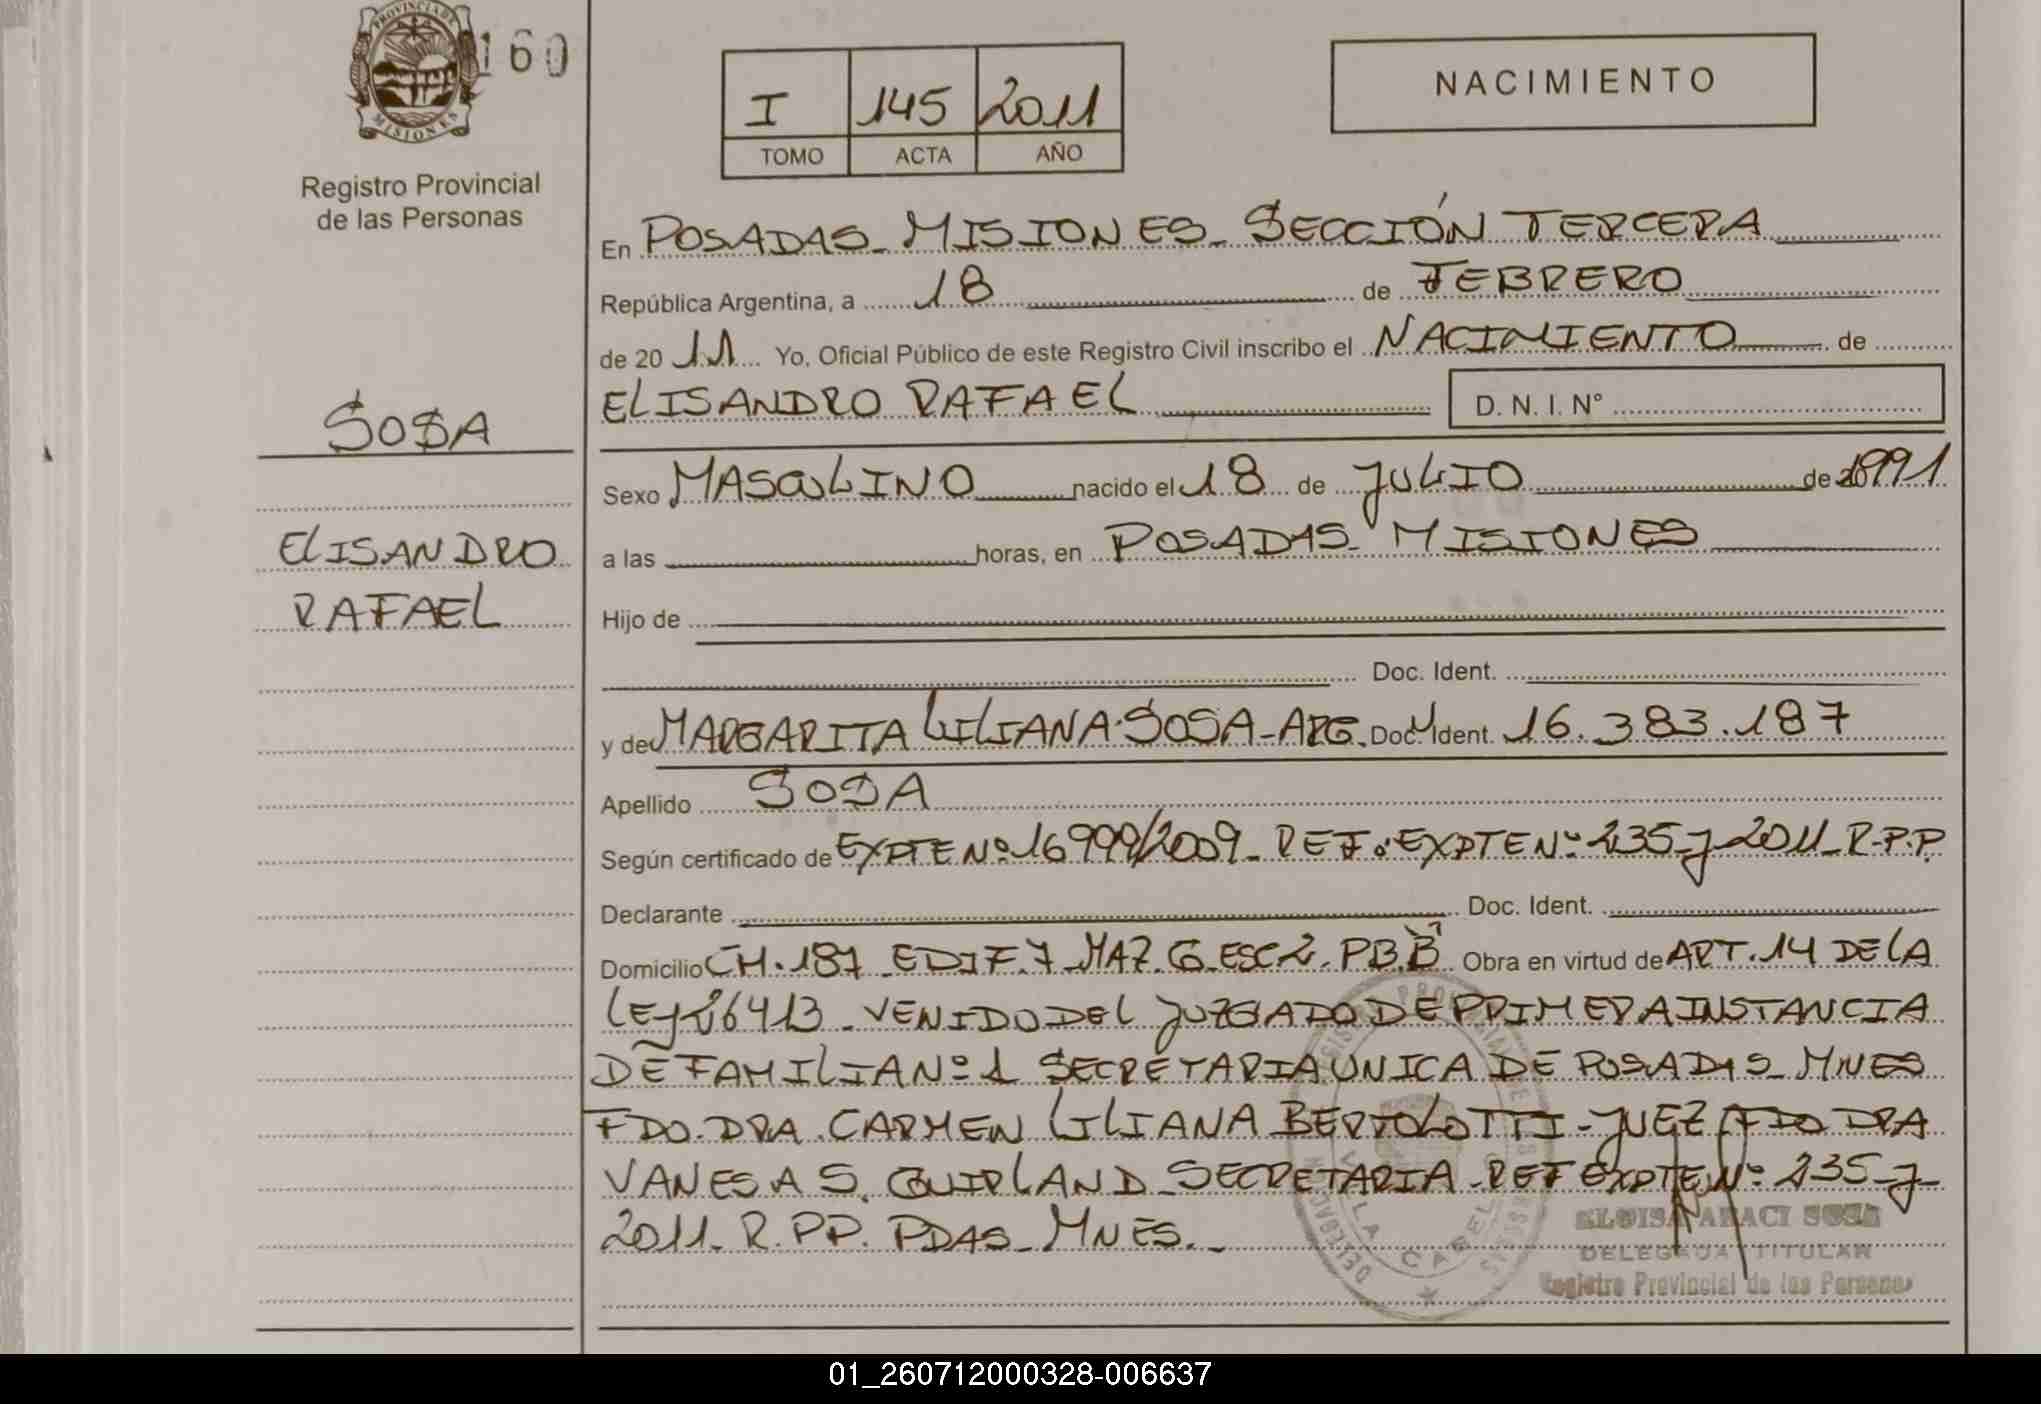 PROVINCIA DE
MISIONES
160
Registro Provincial
de las Personas
I 145 2011
TOMO ACTA AÑO
NACIMIENTO
En POSADAS_ MISIONES_ SECCIÓN TERCERA
República Argentina, a 18 de FEBRERO
de 20 11 Yo, Oficial Público de este Registro Civil inscribo el NACIMIENTO de
ELISANDRO RAFAEL D. N. I. N°
SOSA
Sexo MASCULINO nacido el 18 de JULIO de 1991
ELISANDRO
RAFAEL
a las horas, en POSADAS_ MISIONES
Hijo de
Doc. Ident.
y de MARGARITA LILIANA SOSA_ARG. Doc. Ident. M 16.383.187
Apellido SOSA
Según certificado de EXPTE Nº 16999/2009_ REF. EXPTE Nº 235_J_2011_R.P.P
Declarante Doc. Ident.
Domicilio CH.187_EDIF.7_MAZ.G_ESC2.PB."B" Obra en virtud de ART.14 DE LA
LEY 26413_VENIDO DEL JUZGADO DE PRIMERA INSTANCIA
DE FAMILIA Nº 1 SECRETARIA UNICA DE POSADAS_MNES
FDO.DRA.CARMEN LILIANA BERTOLOTTI-JUEZ FDO DRA
VANESA S. GUIRLAND_SECRETARIA_REF EXPTE Nº 235_J_
2011_R.PP. PDAS_MNES._
ELOISA ARACI SOSA
DELEGADA TITULAR
Registro Provincial de las Personas
VILLA CABELLO
01_260712000328-006637